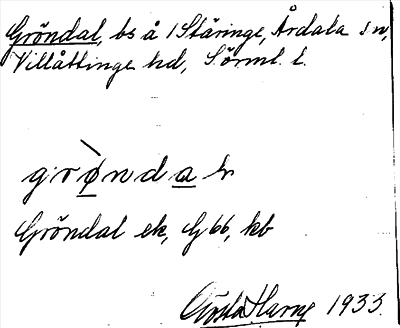 Gröndal, bs å 1 Stäringe, Årdala sn,
Villåttinge hd, Sörml. l.
grø̀ndal
Gröndal ek, G 66, kb
Gösta Harne 1933.